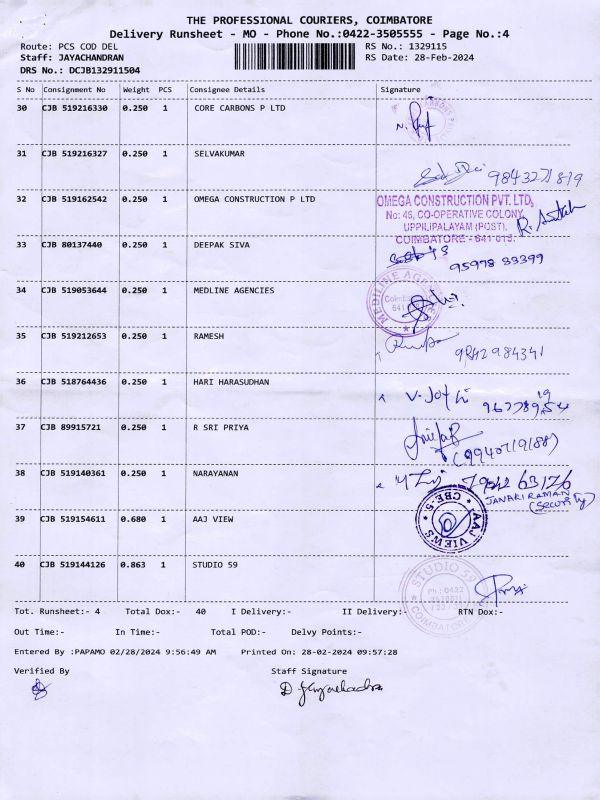 THE PROFESSIONAL COURIERS, COIMBATORE
Delivery Runsheet - MO - Phone No.:0422-3505555 - Page No.:4
Route: PCS COD DEL RS No.: 1329115
Staff: JAYACHANDRAN RS Date: 28-Feb-2024
DRS No.: DCJB132911504
S No Consignment No Weight PCS Consignee Details Signature
30 CJB 519216330 0.250 1 CORE CARBONS P LTD
31 CJB 519216327 0.250 1 SELVAKUMAR
9843271819
32 CJB 519162542 0.250 1 OMEGA CONSTRUCTION P LTD
OMEGA CONSTRUCTION PVT. LTD,
No: 46, CO-OPERATIVE COLONY,
UPPILIPALAYAM (POST),
COIMBATORE - 641 015.
33 CJB 80137440 0.250 1 DEEPAK SIVA
95978 83399
34 CJB 519053644 0.250 1 MEDLINE AGENCIES
MEDILINE AGENCIES
35 CJB 519212653 0.250 1 RAMESH
9842984341
36 CJB 518764436 0.250 1 HARI HARASUDHAN
37 CJB 89915721 0.250 1 R SRI PRIYA
(9940719188)
38 CJB 519140361 0.250 1 NARAYANAN
7942 63126
JANAKIRAMAN
(SECURITY)
39 CJB 519154611 0.680 1 AAJ VIEW
AAJ VIEWS CBE-5
40 CJB 519144126 0.863 1 STUDIO 59
STUDIO 59
Ph : 0422
COIMBATORE
Tot. Runsheet:- 4 Total Dox:- 40 I Delivery:- II Delivery:- RTN Dox:-
Out Time:- In Time:- Total POD:- Delvy Points:-
Entered By :PAPAMO 02/28/2024 9:56:49 AM Printed On: 28-02-2024 09:57:28
Verified By Staff Signature